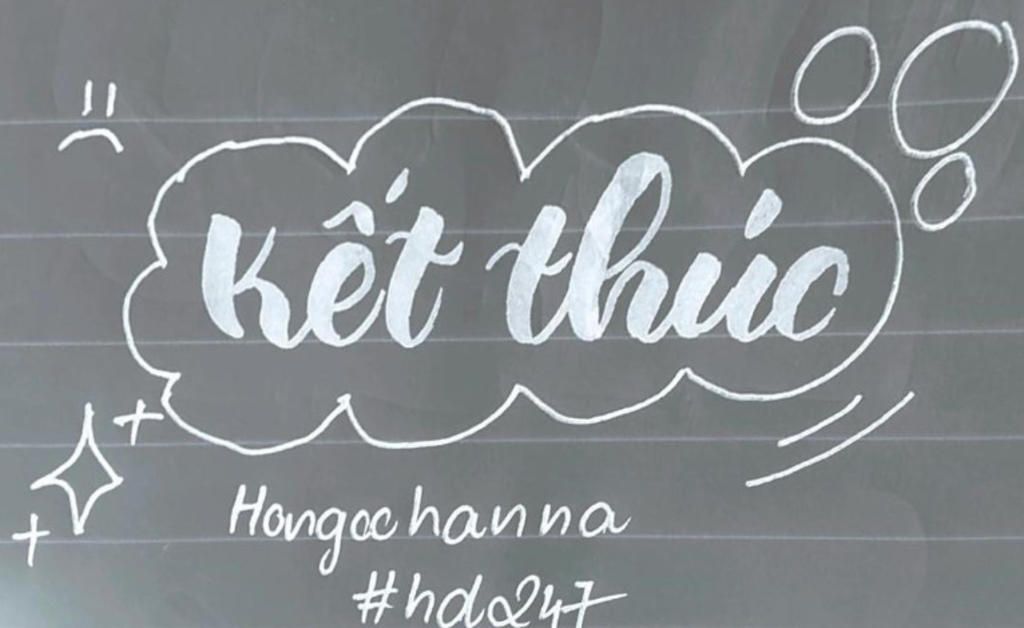 kết thúc
Hongocchanna
#hd247